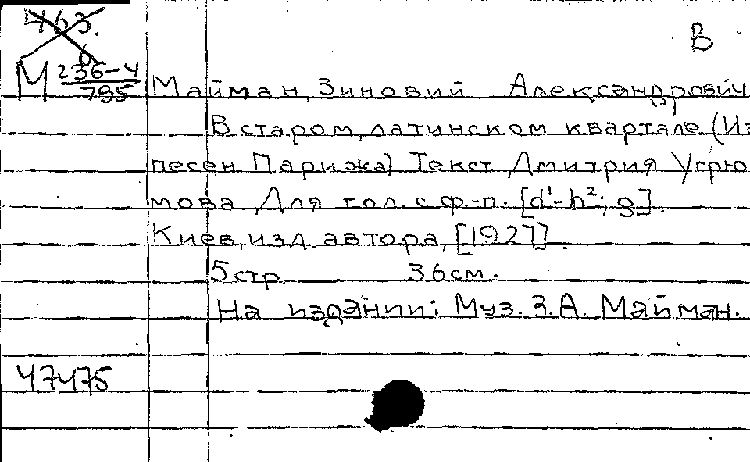 463.
В
М 236-4
795
Майман, Зиновий Александрович
В старом латинском квартале (Из
песен Парижа) Текст Дмитрия Угрю-
мова. Для гол. с ф-п. [d¹-h²; g].
Киев, изд. автора, [1927].
5 стр. 36 см.
На издании: Муз. З. А. Майман.
47475